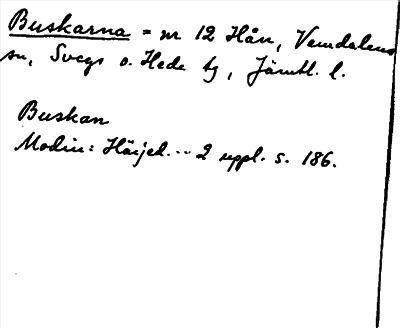 Buskarna = nr 12 Hån, Vemdalens
sn, Svegs o. Hede tg, Jämtl. l.
Buskan
Modin: Härjed. -- 2 uppl. s. 186.